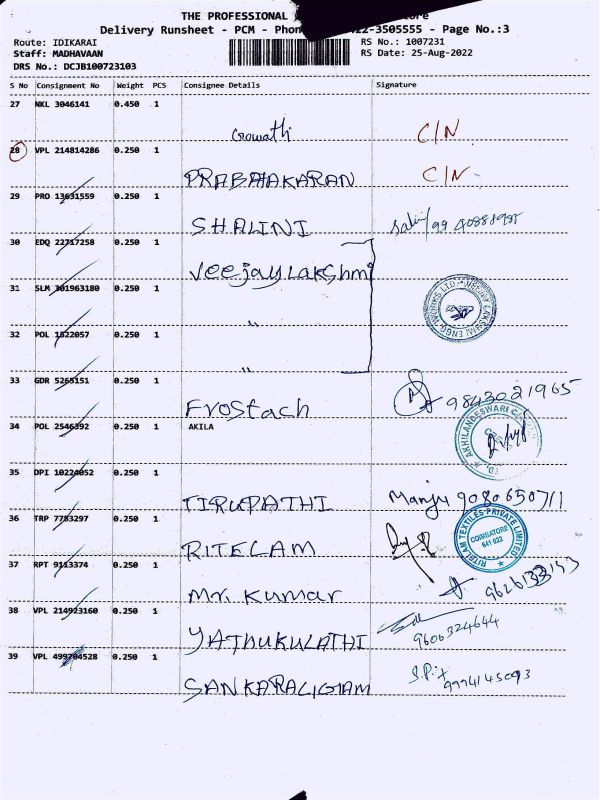 THE PROFESSIONAL
Delivery Runsheet - PCM - Phon 22-3505555 - Page No.:3
Route: IDIKARAI RS No.: 1007231
Staff: MADHAVAAN RS Date: 25-Aug-2022
DRS No.: DCJB100723103
S No Consignment No Weight PCS Consignee Details Signature
27 NKL 3046141 0.450 1
Gowathi C/N
28 VPL 214814286 0.250 1
PRABHAKARAN C/N
29 PRO 13631559 0.250 1
SHALINI
30 EDQ 22717258 0.250 1
Veejaylakshmi
31 SLM 301963180 0.250 1
"
32 POL 1522057 0.250 1
"
33 GDR 5265151 0.250 1
Frostach 9843021965
34 POL 2546392 0.250 1 AKILA
AKHILANDESWARI
35 DPI 10224052 0.250 1
TIRUPATHI Manju 9080650711
36 TRP 7783297 0.250 1
RITELAM
RITELAM TEXTILES PRIVATE LIMITED
COIMBATORE
641 022
37 RPT 9113374 0.250 1
Mr. Kumar
38 VPL 214923160 0.250 1
YATHUKULATHI 9606324644
39 VPL 499704528 0.250 1
SANKARALIGIAM 9994145093